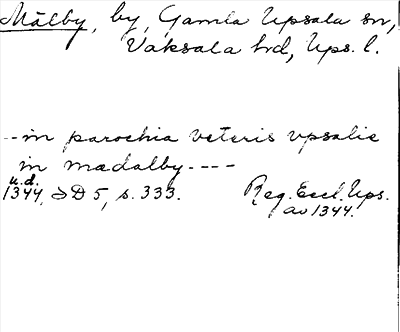 Mālby, by, Gamla Upsala sn,
Vaksala hd, Ups. l.
--in parochia veteris vpsalie
in madalby----
u.d.
1344, SD 5, s. 333. Reg. Eccl. Ups.
av 1344.